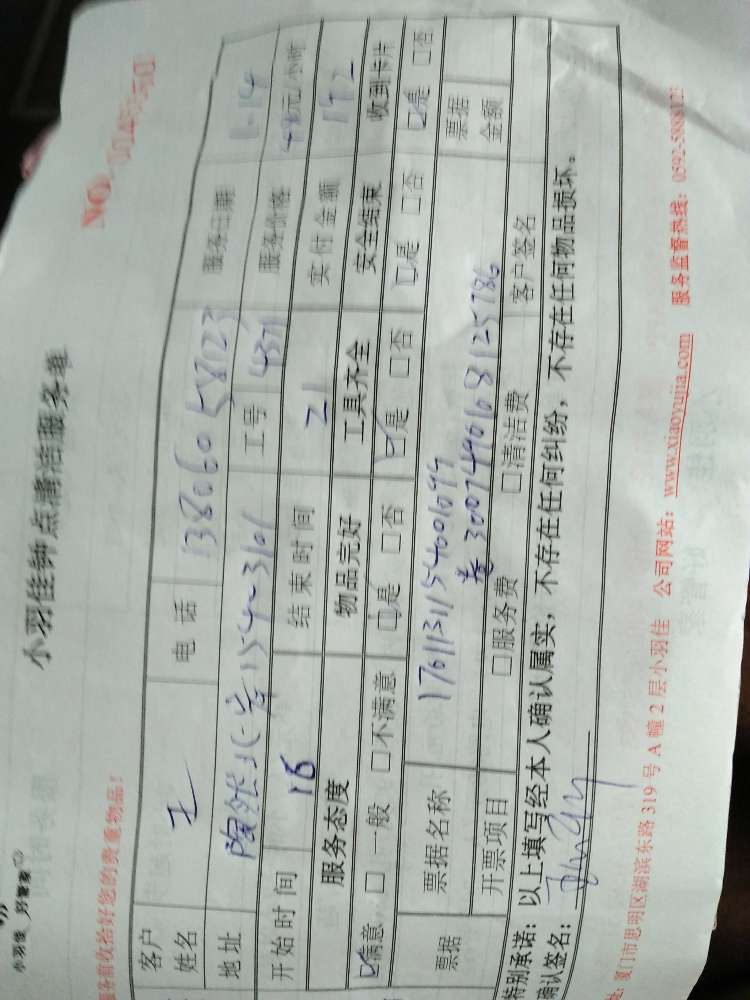 小羽佳 好管家
小羽佳钟点清洁服务单
服务前收拾好您的贵重物品!
客户姓名 王 电话 13806058123 服务日期 1.14
地址 154-3101 工号 服务价格 元/小时
开始时间 16 结束时间 21 实付金额 192
服务态度 物品完好 工具齐全 安全结束 收到卡片
☑满意 □一般 □不满意 ☑是 □否 ☑是 □否 ☑是 □否 ☑是 □否
票据 票据名称 1701131154001099 票据金额
券3007490168125786
开票项目 □服务费 □清洁费 客户签名
特别承诺:以上填写经本人确认属实,不存在任何纠纷,不存在任何物品损坏。
确认签名:
址:厦门市思明区湖滨东路 319 号 A 幢 2 层小羽佳 公司网站:www.xiaoyujia.com 服务监督热线:0592-5888123